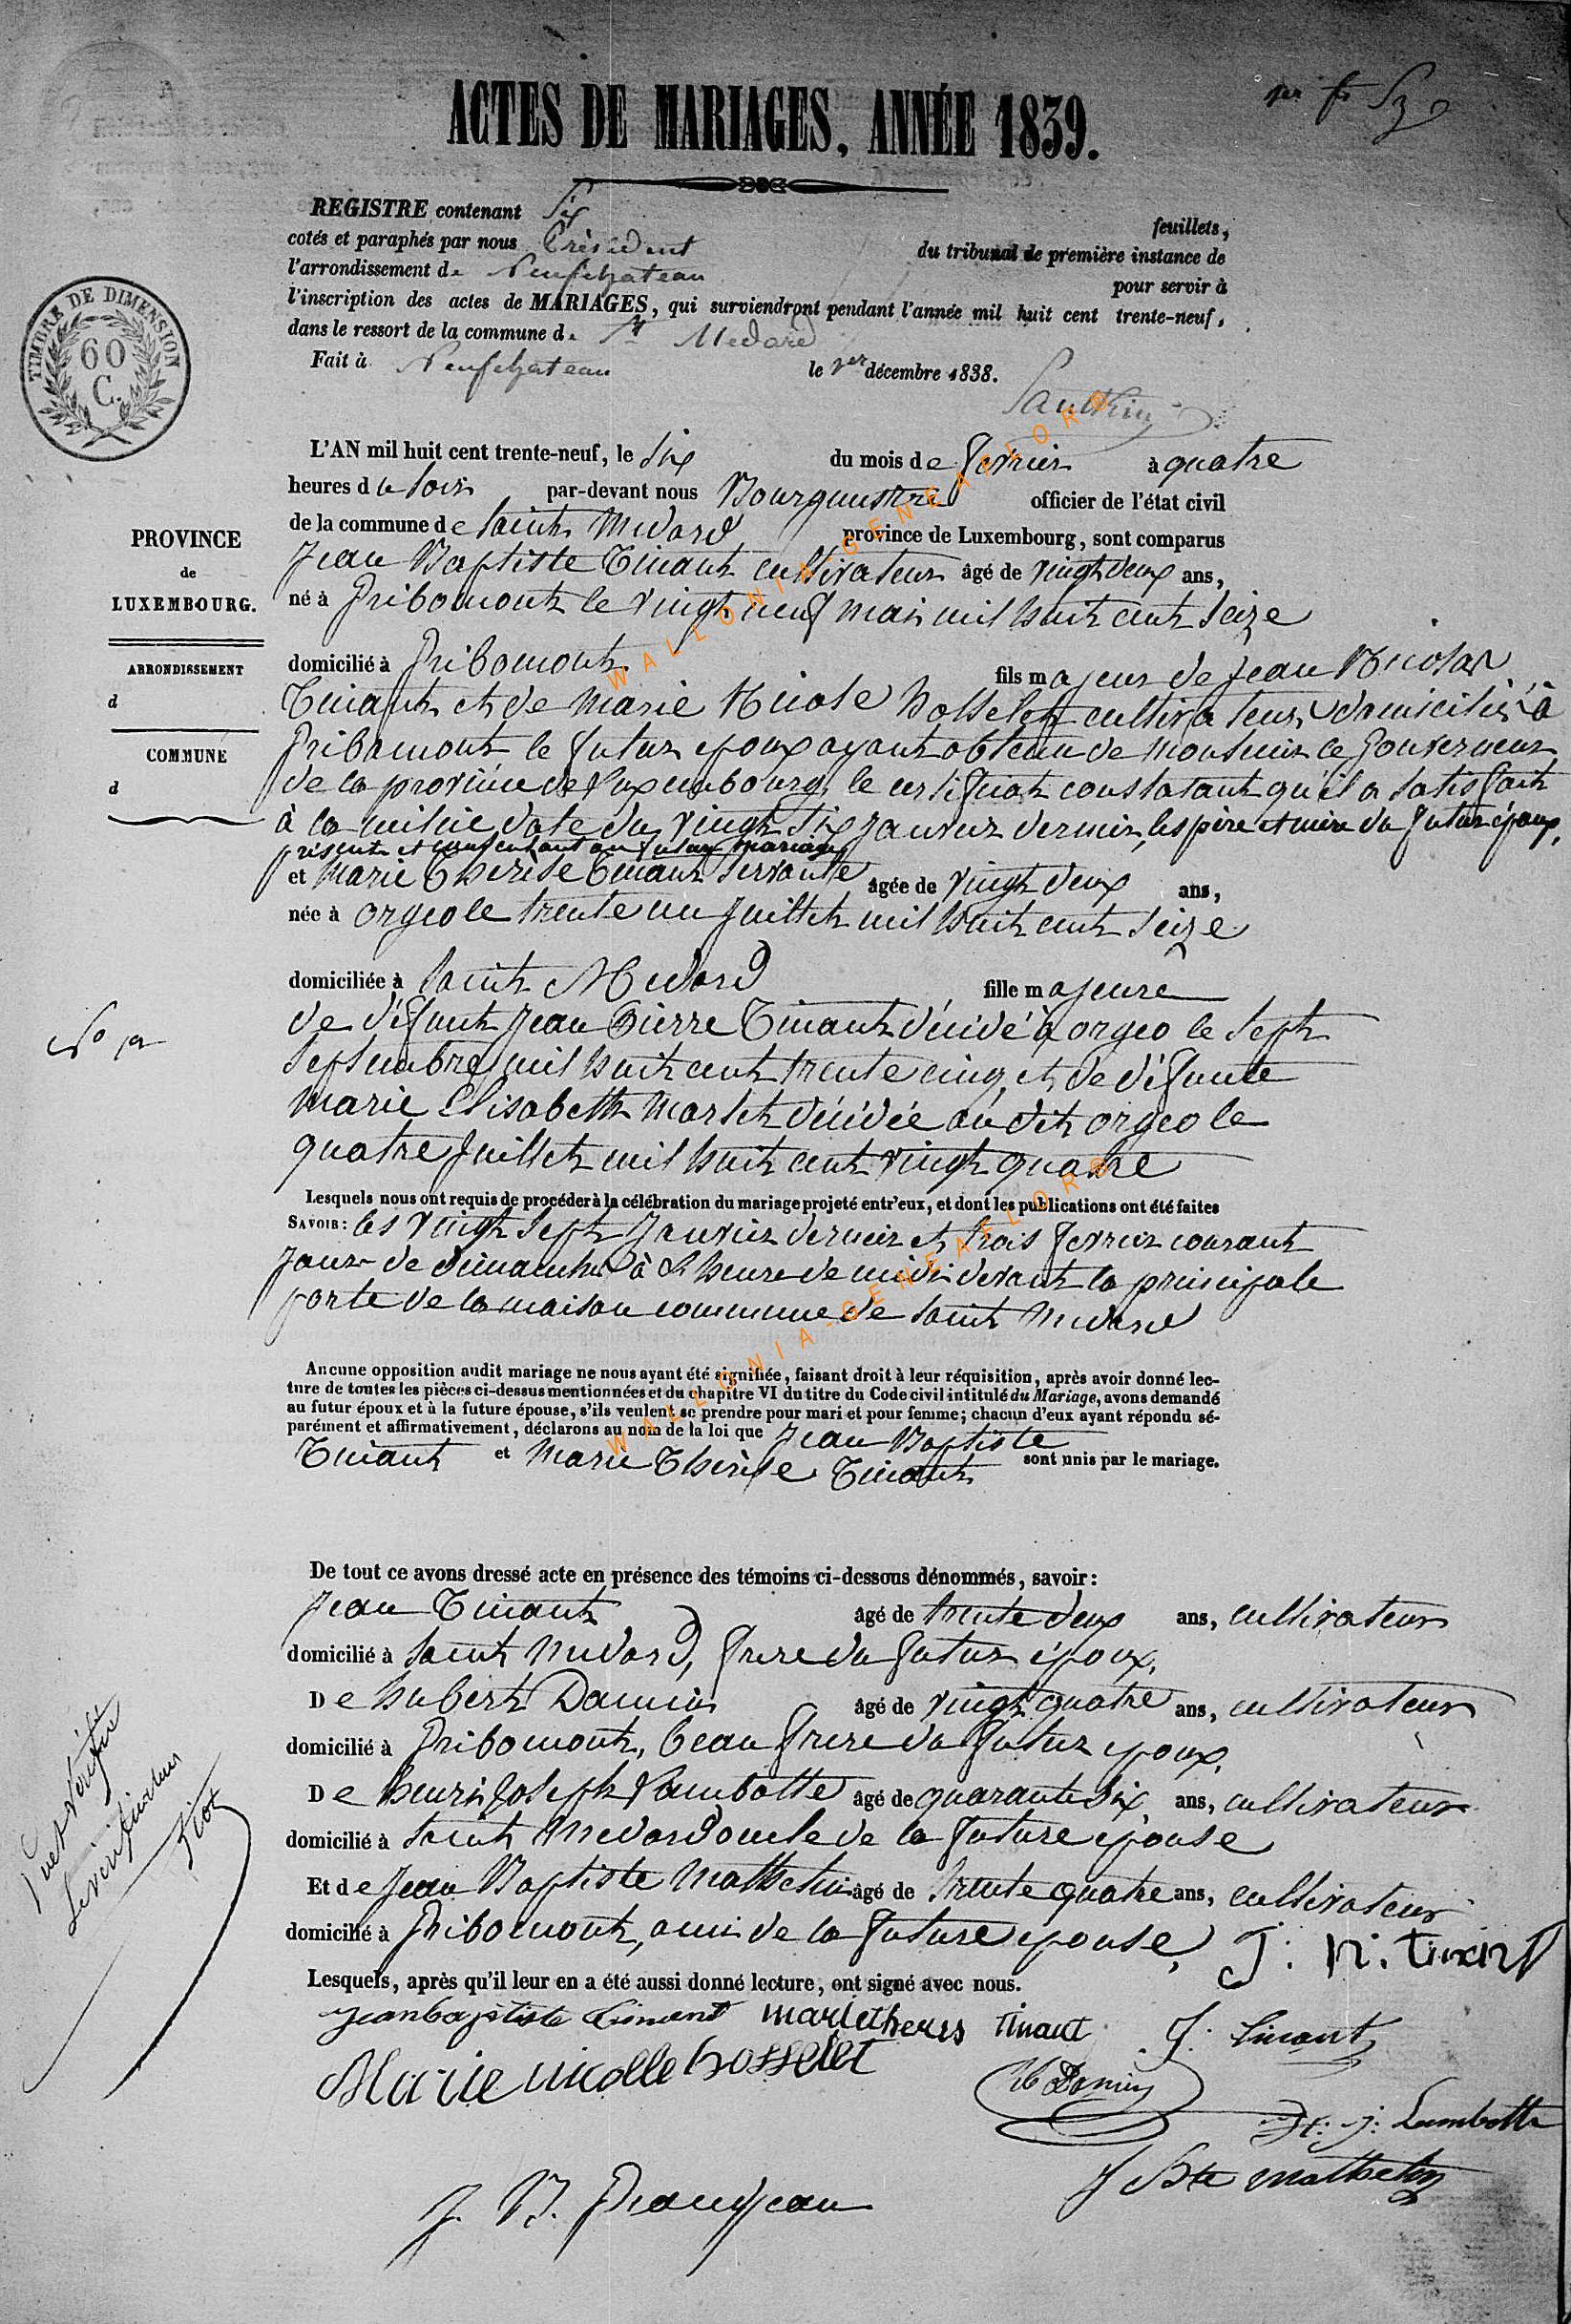 ACTES DE MARIAGES, ANNÉE 1839.
REGISTRE contenant Six feuillets,
cotés et paraphés par nous Président du tribunal de première instance de
l'arrondissement de Neufchateau pour servir à
l'inscription des actes de MARIAGES, qui surviendront pendant l'année mil huit cent trente-neuf,
dans le ressort de la commune de St Medard
Fait à Neufchateau le 1er décembre 1838.
TIMBRE DE DIMENSION
60
C.
L'AN mil huit cent trente-neuf, le Six du mois de fevrier à quatre
heures du soir par-devant nous Bourguemstre officier de l'état civil
de la commune de Saint Medard province de Luxembourg, sont comparus
Jean Baptiste Tinant cultivateur âgé de vingt deux ans,
né à Pribomont le vingt neuf mai mil huit cent seize
PROVINCE
de
LUXEMBOURG.
ARRONDISSEMENT
d
COMMUNE
d
domicilié à Pribomont fils majeur de Jean Nicolas
Tinant et de Marie Nicole hosselet cultivateurs domiciliés à
Pribomont le futur epoux ayant obtenu de Monsieur le Gouverneur
de la province de Luxembourg, le certificat constatant qu'il a satisfait
à la milice date du vingt six janvier dernier, les père et mère du futur époux,
présent et consentant au futur mariage
et Marie Thérèse Tinant servante âgée de vingt deux ans,
née à orgeo le trente un Juillet mil huit cent seize
domiciliée à Saint Medard fille majeure
No 1er
de défunt Jean Pierre Tinant décédé à orgeo le sept
septembre mil huit cent trente cinq, et de défunte
Marie Elisabeth Marlet décédée au dit orgeo le
quatre Juillet mil huit cent vingt quatre
Lesquels nous ont requis de procéder à la célébration du mariage projeté entr'eux, et dont les publications ont été faites
SAVOIR: les vingt sept Janvier dernier et trois fevrier courant
jour de dimanche à l'heure de midi devant la principale
porte de la maison commune de Saint Medard
Aucune opposition audit mariage ne nous ayant été signifiée, faisant droit à leur réquisition, après avoir donné lec-
ture de toutes les pièces ci-dessus mentionnées et du chapitre VI du titre du Code civil intitulé du Mariage, avons demandé
au futur époux et à la future épouse, s'ils veulent se prendre pour mari et pour femme; chacun d'eux ayant répondu sé-
parément et affirmativement, déclarons au nom de la loi que Jean Baptiste
Tinant et Marie Thérèse Tinant sont unis par le mariage.
De tout ce avons dressé acte en présence des témoins ci-dessous dénommés, savoir:
Jean Tinant âgé de trente deux ans, cultivateur
domicilié à Saint Medard, frere du futur époux,
De hubert Damien âgé de vingt quatre ans, cultivateur
domicilié à Pribomont, beau frere du futur epoux,
De henri Joseph Lambotte âgé de quarante six ans, cultivateur
domicilié à Saint Medard oncle de la future épouse
Et de Jean Baptiste Mathelin âgé de trente quatre ans, cultivateur
domicilié à Pribomont, ami de la future epouse,
J: N: Tinant
Lesquels, après qu'il leur en a été aussi donné lecture, ont signé avec nous.
Jeanbaptiste Tinant marietheres Tinant J. Tinant
Marie nicolle hosselet
H Damien
H: J: Lambotte
J Bte mathelin
J. B. Grandjean
Vu et vérifié
Le vérificateur
WALLONIA-GENEAFLORE
WALLONIA-GENEAFLORE